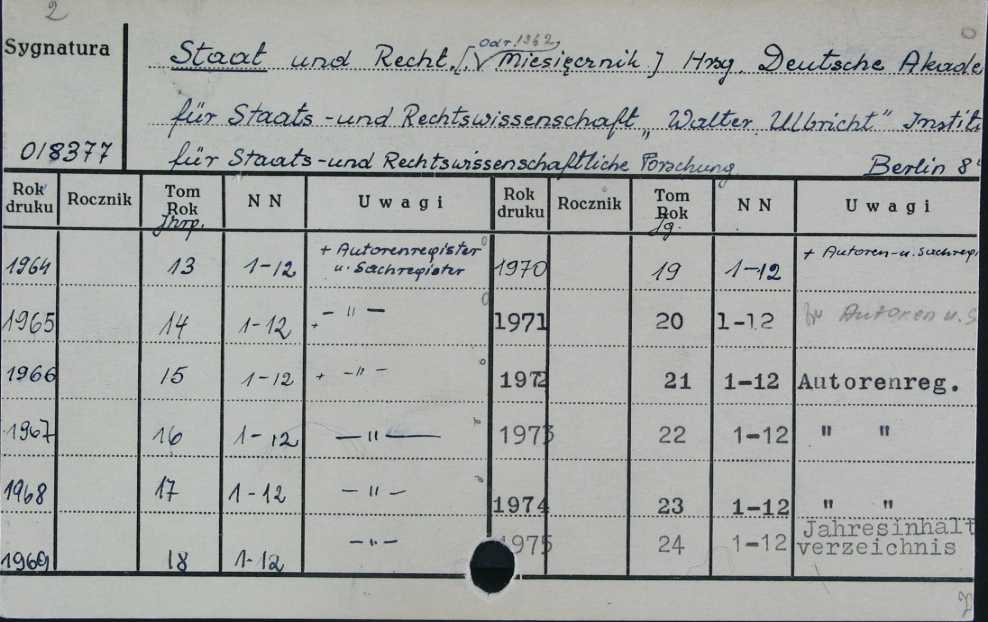 2
Sygnatura
od r. 1962
Staat und Recht. [Miesięcznik] Hrsg. Deutsche Akade
für Staats-und Rechtswissenschaft „Walter Ulbricht" Instit.
018377 für Staats-und Rechtswissenschaftliche Forschung Berlin 8°
Rok druku Rocznik Tom Rok NN Uwagi Rok druku Rocznik Tom Rok NN Uwagi
Jhrg. Jg.
1964 13 1-12 + Autorenregister u. Sachregister 1970 19 1-12 + Autoren-u. Sachregi
1965 14 1-12 + — " — 1971 20 1-12 Autoren u. S
1966 15 1-12 + — " — 1972 21 1-12 Autorenreg.
1967 16 1-12 — " — 1973 22 1-12 " "
1968 17 1-12 — " — 1974 23 1-12 " "
1969 18 1-12 — " — 1975 24 1-12 Jahresinhalt
verzeichnis